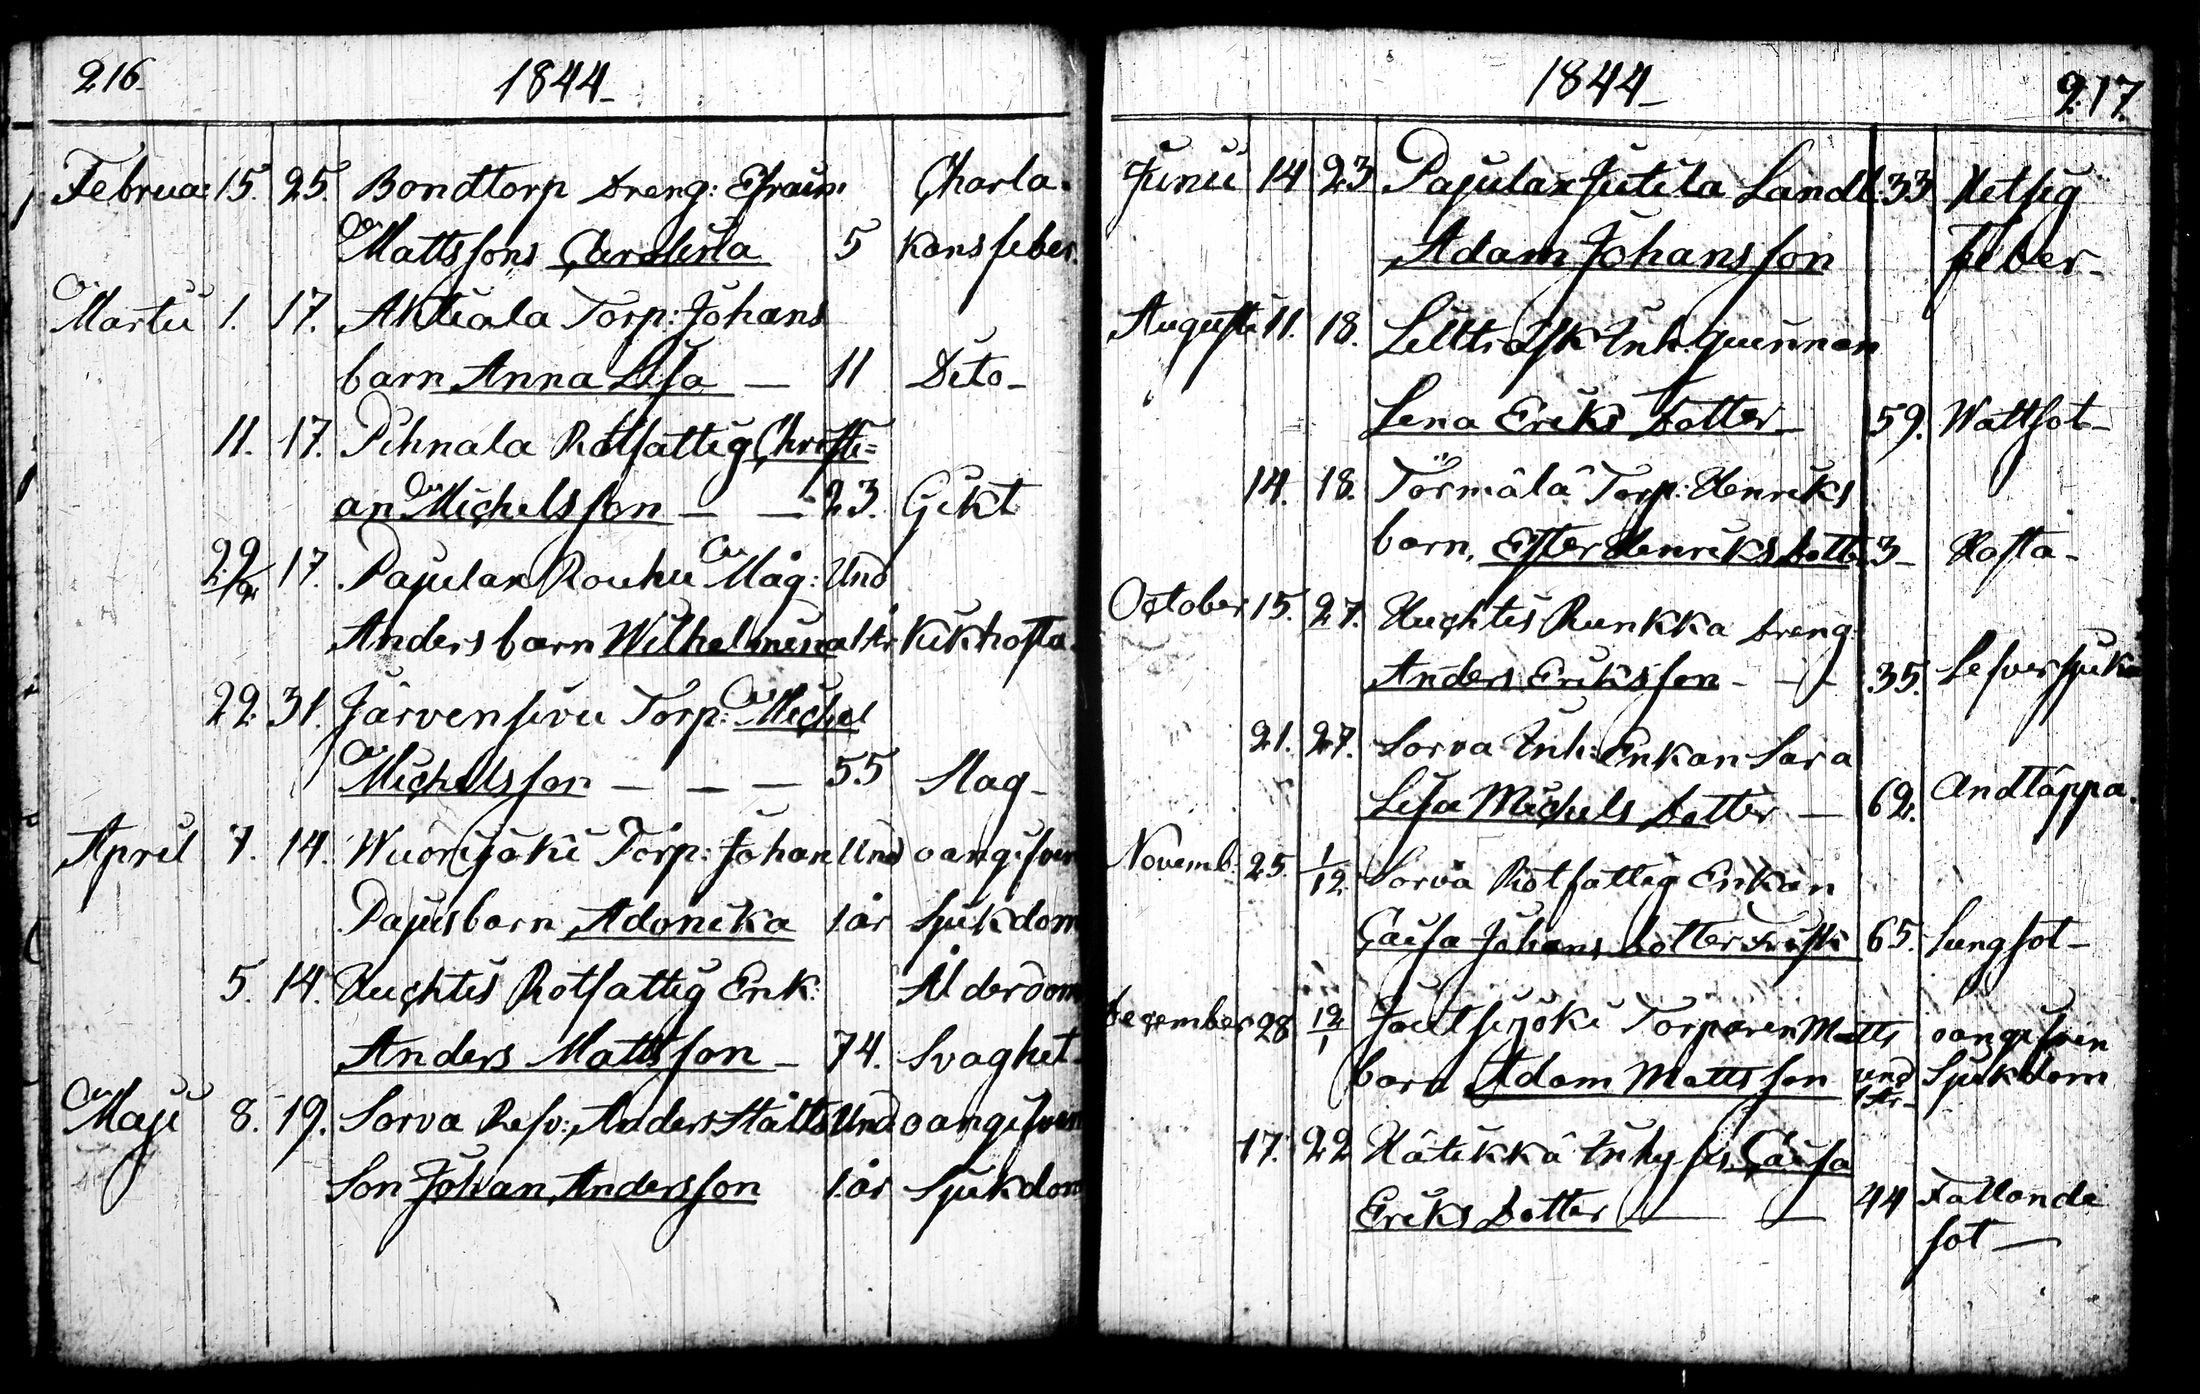 216.
1844
Februa: 15. 25. Bondtorp Dreng: Efraim
Mattssons Carolina 5 Charla-
kansfeber
Martii 1. 17. Aktiala Torp: Johans
barn Anna Lisa — 11 Dito-
11. 17. Pihnala Rotfattig Christi=
an Michelsson — — 23. Gikt
22 17. Pajulax Rouhu Måg: Und
Anders barn Wilhelmina 1 År Kikhosta.
22. 31. Järvensivu Torp: Michel
Michelsson — — — 55 Slag-
April 7. 14. Wuorijoki Torp: Johan Und oangifven
Pajus barn Adonika 1 år Sjukdom
5. 14. Huchtis Rotfattig Enk: Ålderdom
Anders Mattsson — 74. Svaghet-
Maji 8. 19. Sorva Resv: Anders Ståls Und oangifven
Son Johan Andersson 1 år Sjukdom
1844
217.
Junii 14 23 Pajulax Jutila Landb: 33 Hetsig
Adam Johansson Feber-
Augusti 11. 18. Lillträsk Inh: quinnan
Lena Eriks Dotter 59. Wattsot-
14. 18. Törmälä Torp: Henriks
barn, Ester Henriks Dotter 3- Hosta-
October 15. 27. Huchtis Runkka Dreng:
Anders Eriksson - - - 35. Lefversjuka
21. 27. Sorva Inh: Enkan Sara
Lisa Michels Dotter — 62. Andtäppa.
Novemb: 25 1/12 Sorva Rotfattig Enkan
Caisa Johans Dotter Frisk 65. Lungsot-
December 28 12/1 Joutsijoki Torparen Matts oangifven
barn Adam Mattsson und 1 År- Sjukdom
17. 22 Hätikkä Inhyses Caisa
Eriks Dotter — — 44 Fallande
sot —